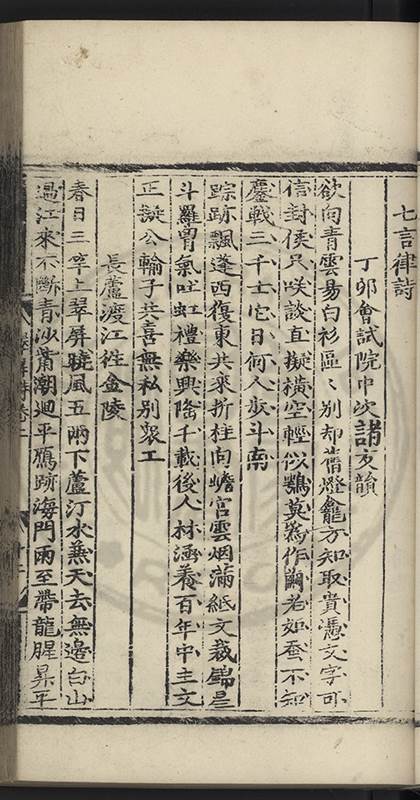 七言律詩
丁卯會試院中次諸友韻
欲向青雲易白衫區〻別却舊燈龕方知取貴憑文字可
信封侯只咲談直擬橫空輕似鶚莫將作繭老如蚕不知
鏖戰三千士它日何人步斗南
踪跡飄蓬西復東共來折桂向蟾宮雲烟滿紙文裁錦星
斗羅胷氣吐虹禮樂興隆千載後人材涵養百年中主文
正擬公輸子共喜無私別衆工
長蘆渡江徃金陵
春日三竿上翠屏曉風五兩下蘆汀水兼天去無邊白山
過江來不斷青沙肅潮迴平鴈跡海門雨至帶龍腥昇平